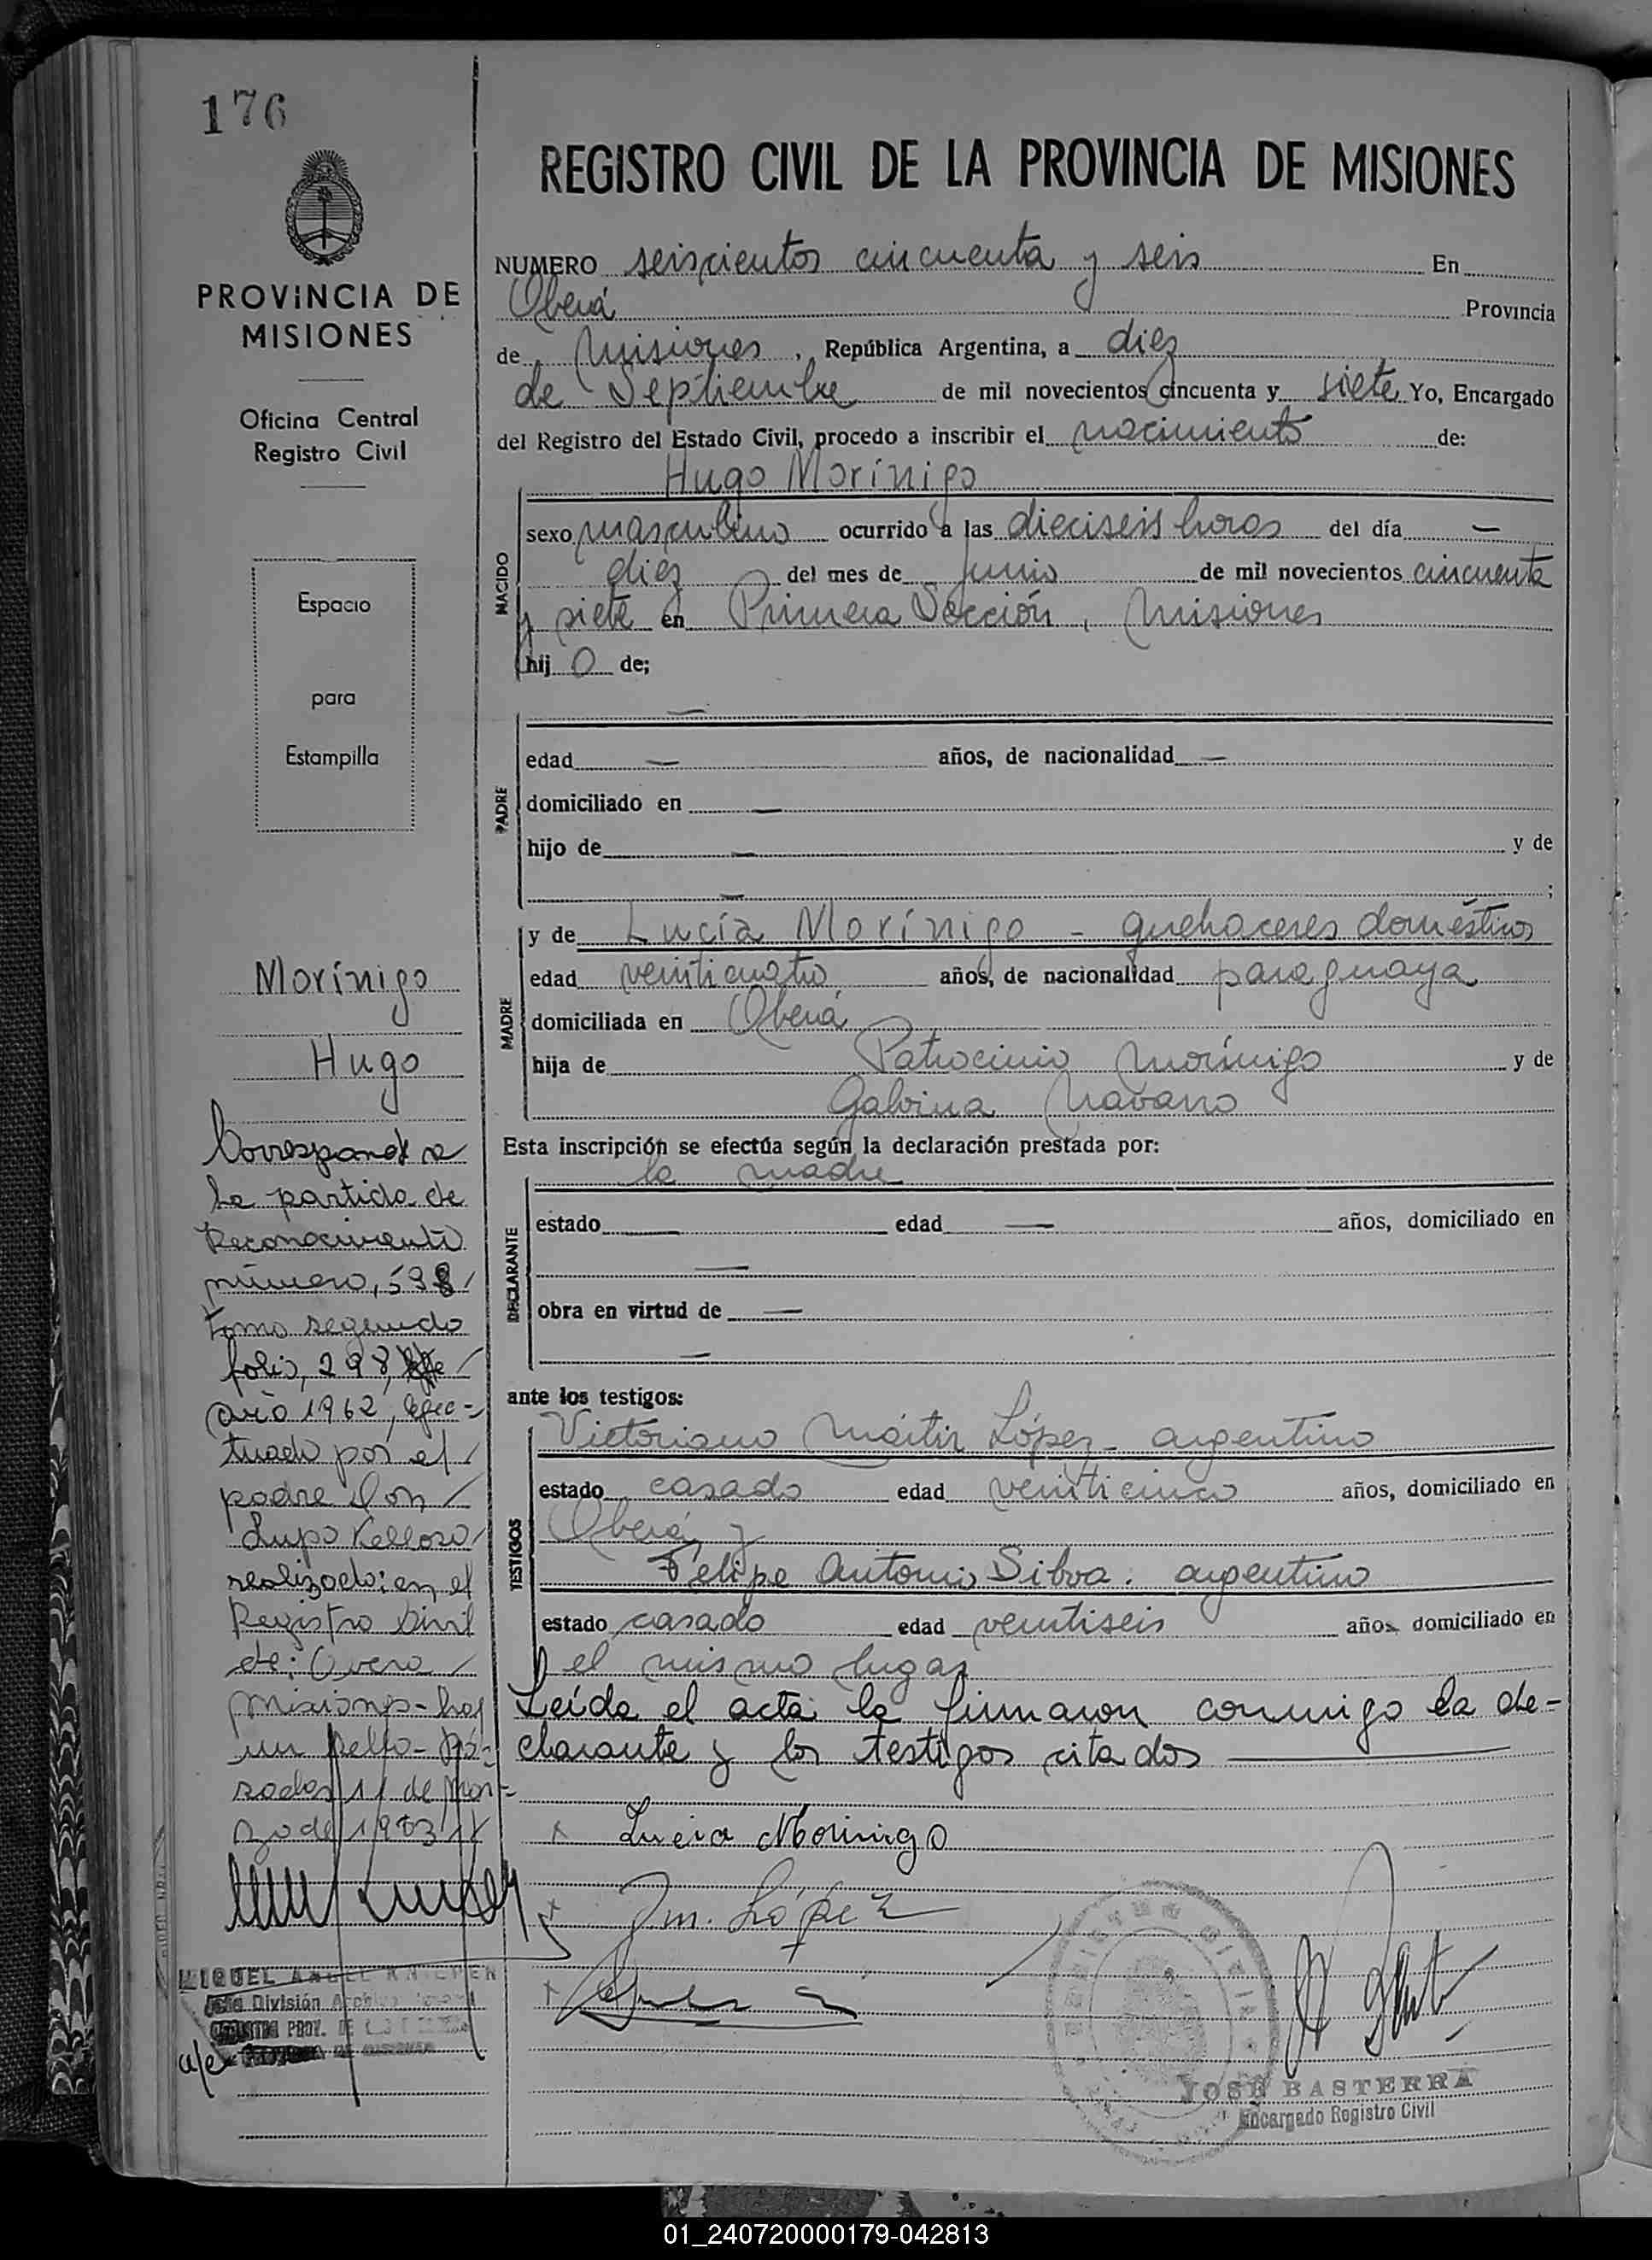 176
PROVINCIA DE
MISIONES
Oficina Central
Registro Civil
Espacio
para
Estampilla
Morínigo
Hugo
Corresponde a
la partida de
Reconocimiento
número, 598
Tomo segundo
folio, 298,
año 1962, efec-
tuado por el
padre Don
Lupo
realizado: en el
Registro Civil
de: Overa
Misiones-
un
sadas 11 de Mar-
zo de 1983
MIGUEL ANGEL
Jefe División Archivo
a/c
REGISTRO CIVIL DE LA PROVINCIA DE MISIONES
NUMERO seiscientos cincuenta y seis En
Oberá Provincia
de Misiones, República Argentina, a diez
de Septiembre de mil novecientos cincuenta y siete Yo, Encargado
del Registro del Estado Civil, procedo a inscribir el nacimiento de:
Hugo Morínigo
NACIDO
sexo masculino ocurrido a las dieciseis horas del día —
diez del mes de junio de mil novecientos cincuenta
y siete en Primera Sección, Misiones
hij o de;
PADRE
—
edad — años, de nacionalidad —
domiciliado en —
hijo de — y de
— ;
MADRE
y de Lucía Morínigo - quehaceres domésticos
edad veinticuatro años, de nacionalidad paraguaya
domiciliada en Oberá
hija de Patrocinio Morínigo y de
Galvina Navarro
Esta inscripción se efectúa según la declaración prestada por:
la madre
DECLARANTE
estado — edad — años, domiciliado en
—
obra en virtud de —
—
ante los testigos:
TESTIGOS
Victoriano Mártir López - argentino
estado casado edad veinticinco años, domiciliado en
Oberá y
Felipe Antonio Silva. argentino
estado casado edad veintiseis años domiciliado en
el mismo lugar
Leída el acta la firmaron conmigo la de-
clarante y los testigos citados
x Lucia Morinigo
x Vm. López
x
JOSÉ BASTERRA
Encargado Registro Civil
01_240720000179-042813